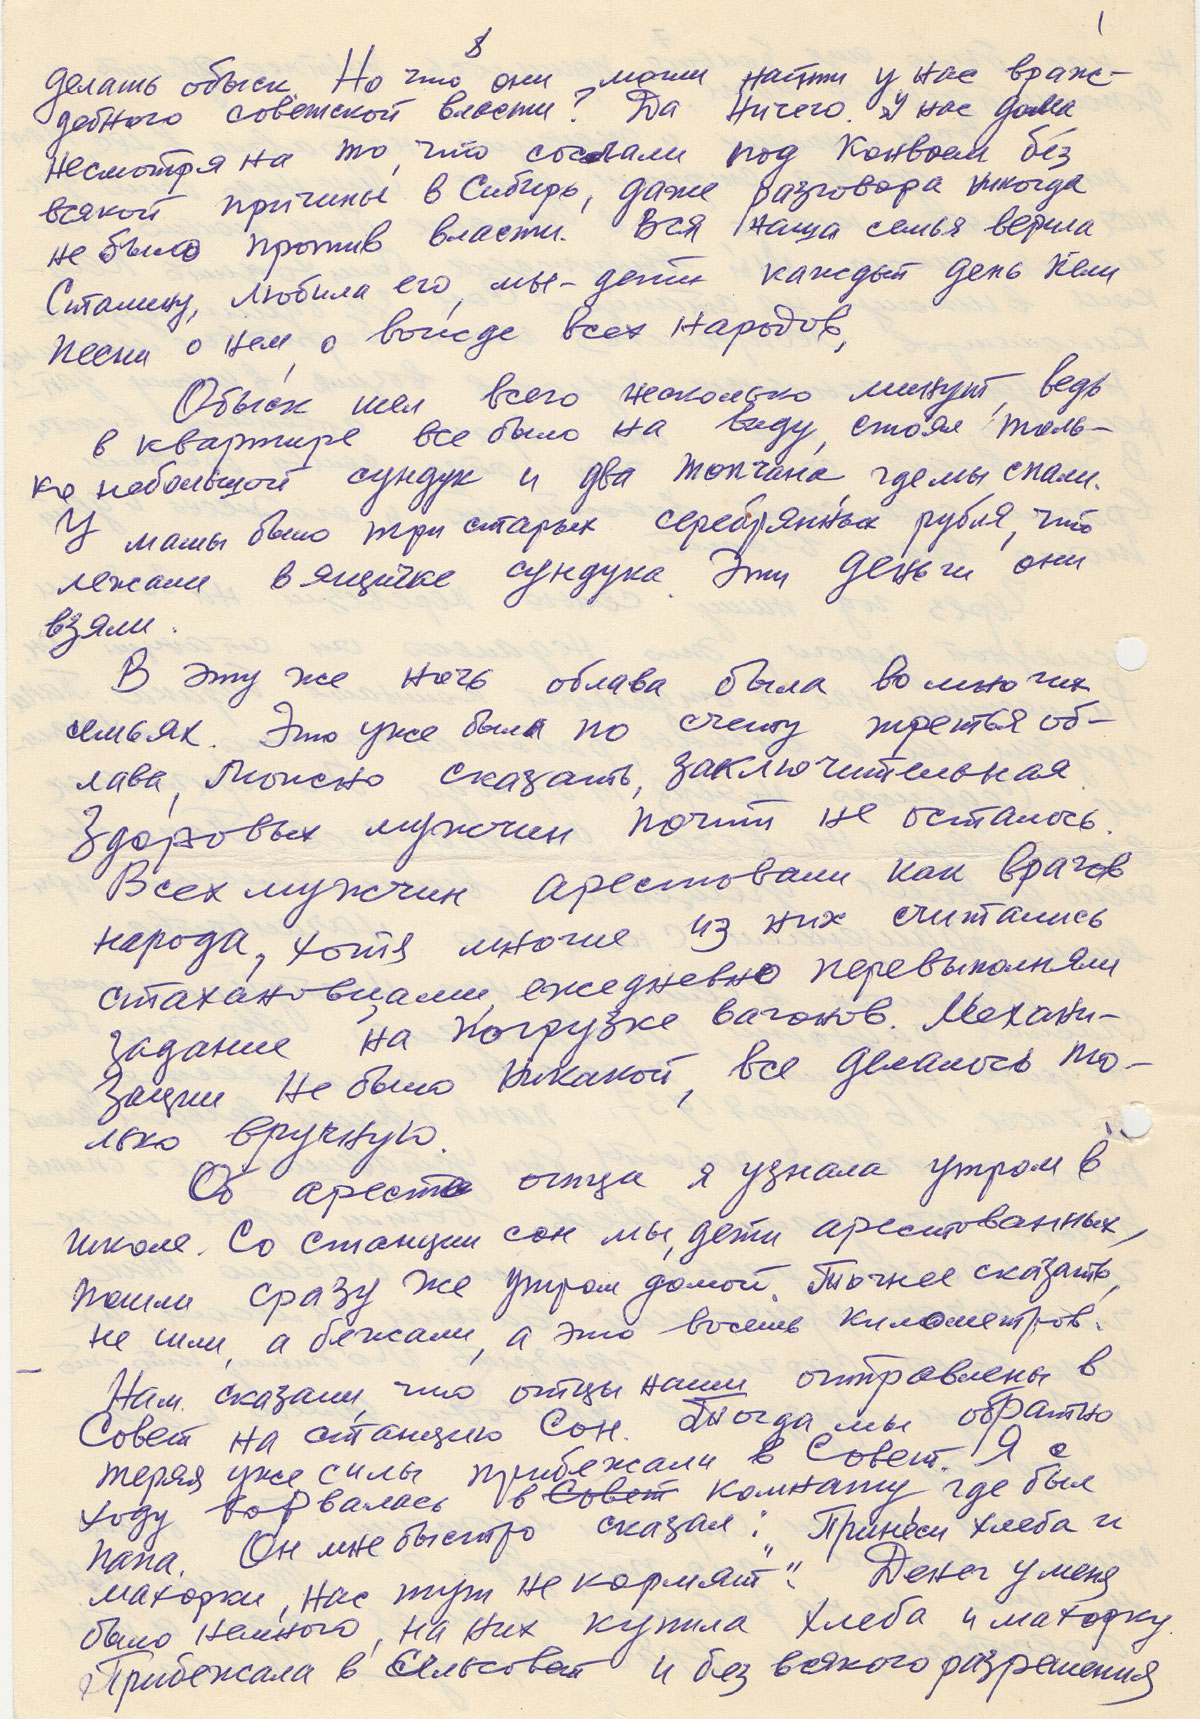 8
делать обыск. Но что они могли найти у нас враж-
дебного советской власти? Да ничего. У нас дома
несмотря на то, что сослали под конвоем без
всякой причины в Сибирь, даже разговора никогда
не было против власти. Вся наша семья верила
Сталину, любила его, мы-дети каждый день пели
песни о нем, о вожде всех народов,
Обыск шел всего несколько минут, ведь
в квартире все было на виду, стоял толь-
ко небольшой сундук и два топчана, где мы спали.
У мамы было три старых серебрянных рубля, что
лежали в ящичке сундука. Эти деньги они
взяли.
В эту же ночь облава была во многих
семьях. Это уже была по счету третья об-
лава, можно сказать, заключительная.
Здоровых мужчин почти не осталось.
Всех мужчин арестовали как врагов
народа, хотя многие из них считались
стахановцами, ежедневно перевыполняли
задание на погрузке вагонов. Механи-
зации не было никакой, все делалось то-
лько вручную.
Об аресте отца я узнала утром в
школе. Со станции Сон мы, дети арестованных,
пошли сразу же утром домой. Точнее сказать,
не шли, а бежали, а это восемь километров.
Нам сказали, что отцы наши отправлены в
Совет на станцию Сон. Тогда мы обратно
теряя уже силы прибежали в Совет. Я с
ходу ворвалась в Совет комнату, где был
папа. Он мне быстро сказал: "Принеси хлеба и
махорки, нас тут не кормят". Денег у меня
было немного, на них купила хлеба и махорку.
Прибежала в сельсовет и без всякого разрешения